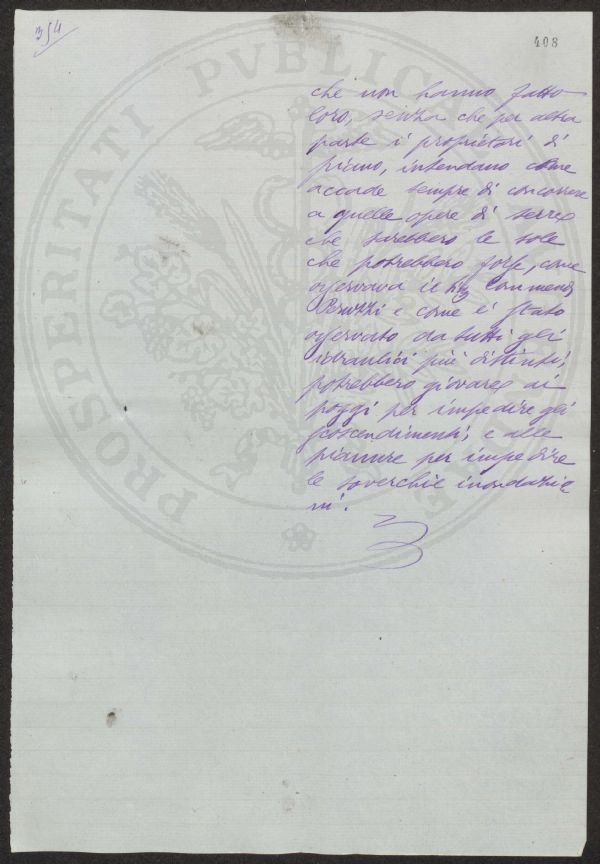 354
408
che non hanno fatto
loro, senza che per altra
parte i proprietari di
piano, intendano come
accade sempre di concorrere
a quelle opere di serre
che sarebbero le sole
che potrebbero forse, come
osservava il Commend
Bruzzi e come è stato
osservato da tutti gli
idraulici più distinti,
potrebbero giovare ai
poggi per impedire gli
scoscendimenti, e alle
pianure per impedire
le soverchie inondazio
ni.
PROSPERITATI PVBLICAE